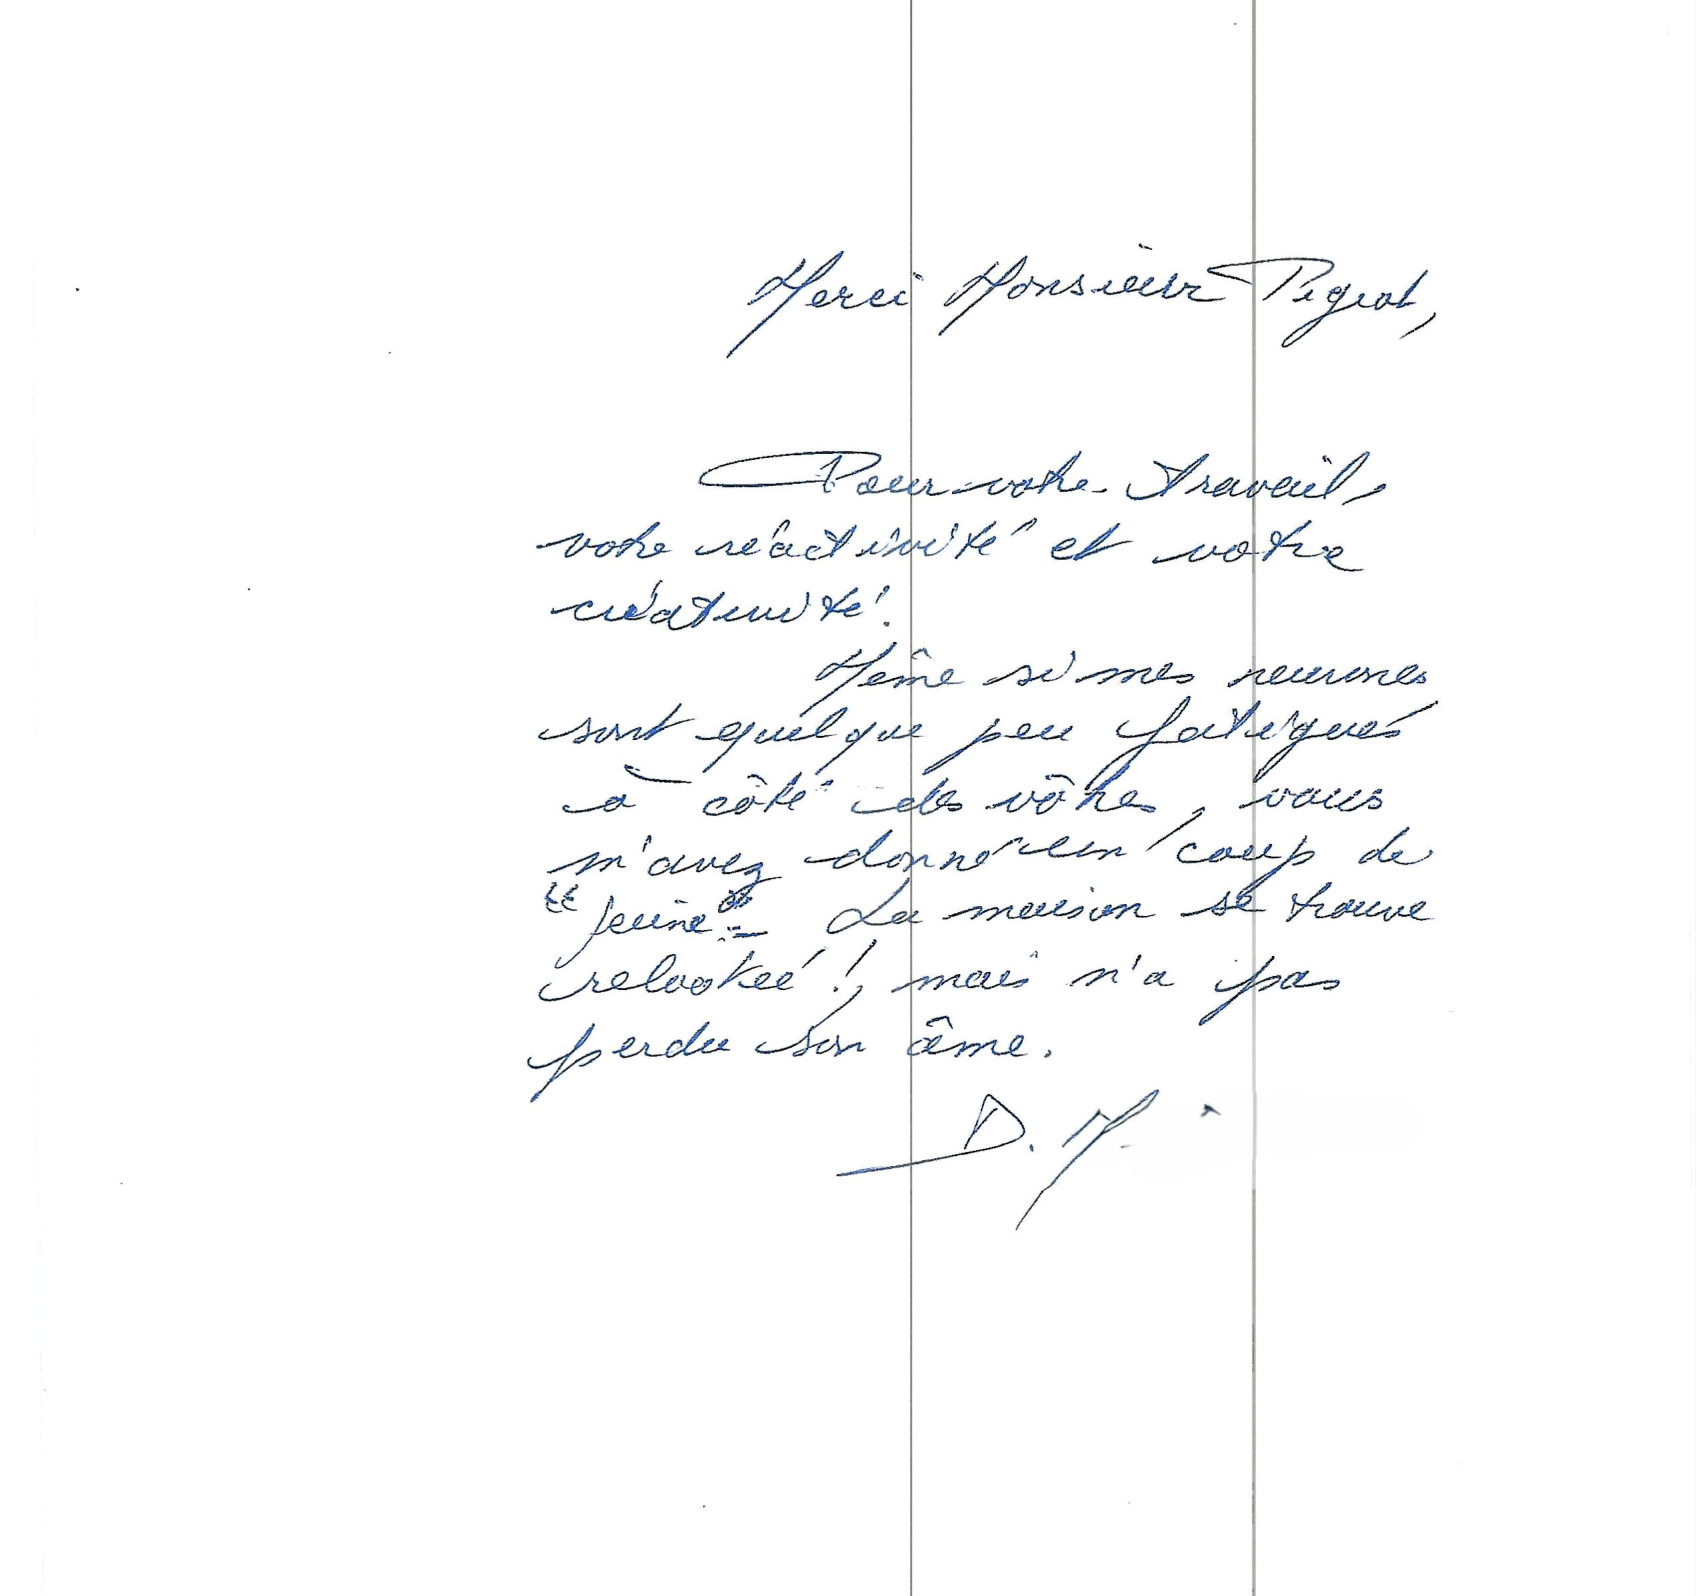 Merci Monsieur Pigeat,
Pour votre travail,
votre réactivité et votre
créativité.
Même si mes neurones
sont quelque peu fatigués
à côté des vôtres, vous
m'avez donné un coup de
"jeune". La maison se trouve
relookée !, mais n'a pas
perdu son âme.
D. M.